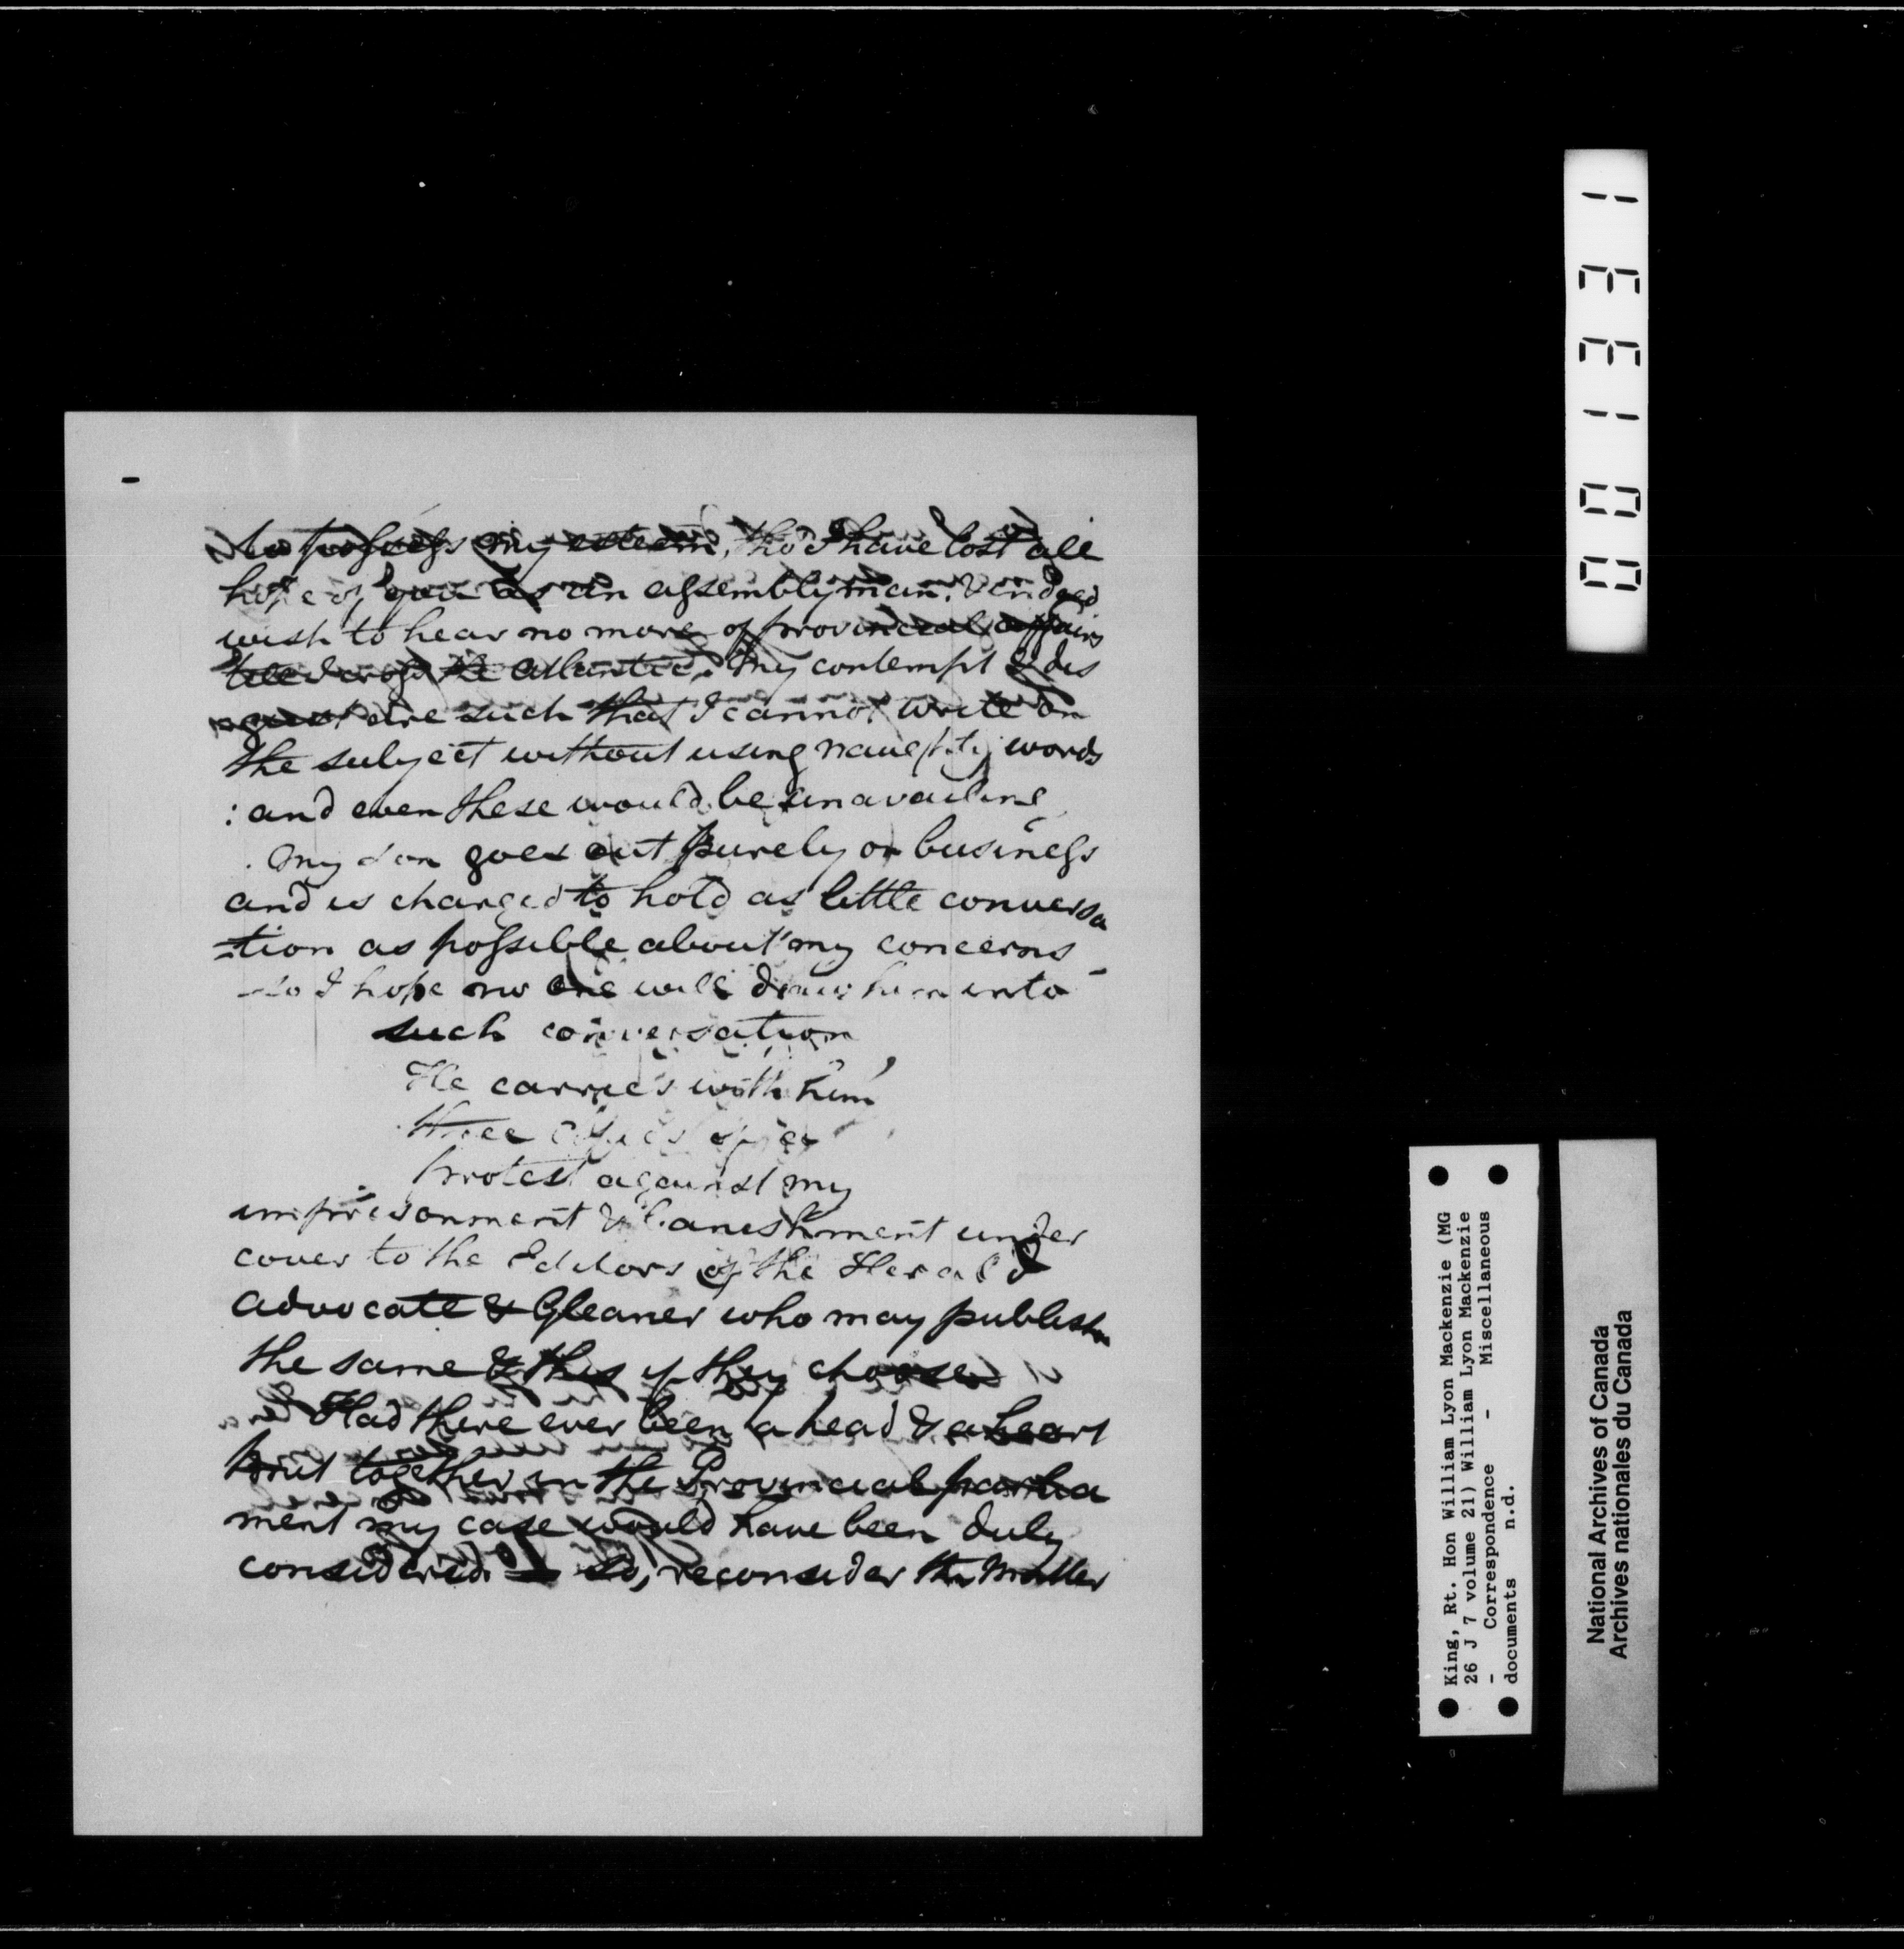 to possess my esteem, tho' I have lost all
hope of you as an assemblyman. & indeed
wish to hear no more of provincial affairs
till I cross the atlantic. My contempt & dis
=gust are such that I cannot write on
the subject without using naughty words
: and even these would be unavailing
. My son goes out purely on business
and is charged to hold as little conversa
=tion as possible about my concerns -
- so I hope no one will draw him into
such conversation
He carries with him
three copies of a
protest against my
imprisonment & banishment under
cover to the Editors of the Herald
advocate & Gleaner who may publish
the same & this if they choose
Had there ever been a head & a heart
put together in the Provincial parlia
ment my case would have been duly
considered. so, reconsider the matter
00101331
King, Rt. Hon William Lyon Mackenzie (MG
26 J 7 volume 21) William Lyon Mackenzie
- Correspondence - Miscellaneous
documents n.d.
National Archives of Canada
Archives nationales du Canada